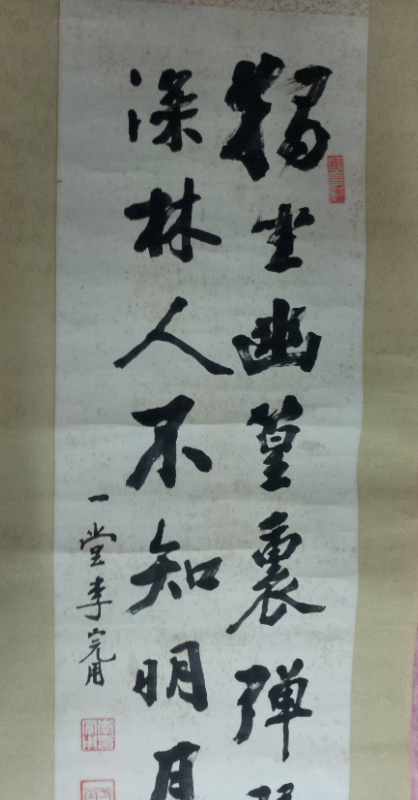 獨坐幽篁裏彈
深林人不知明月
一堂李完用